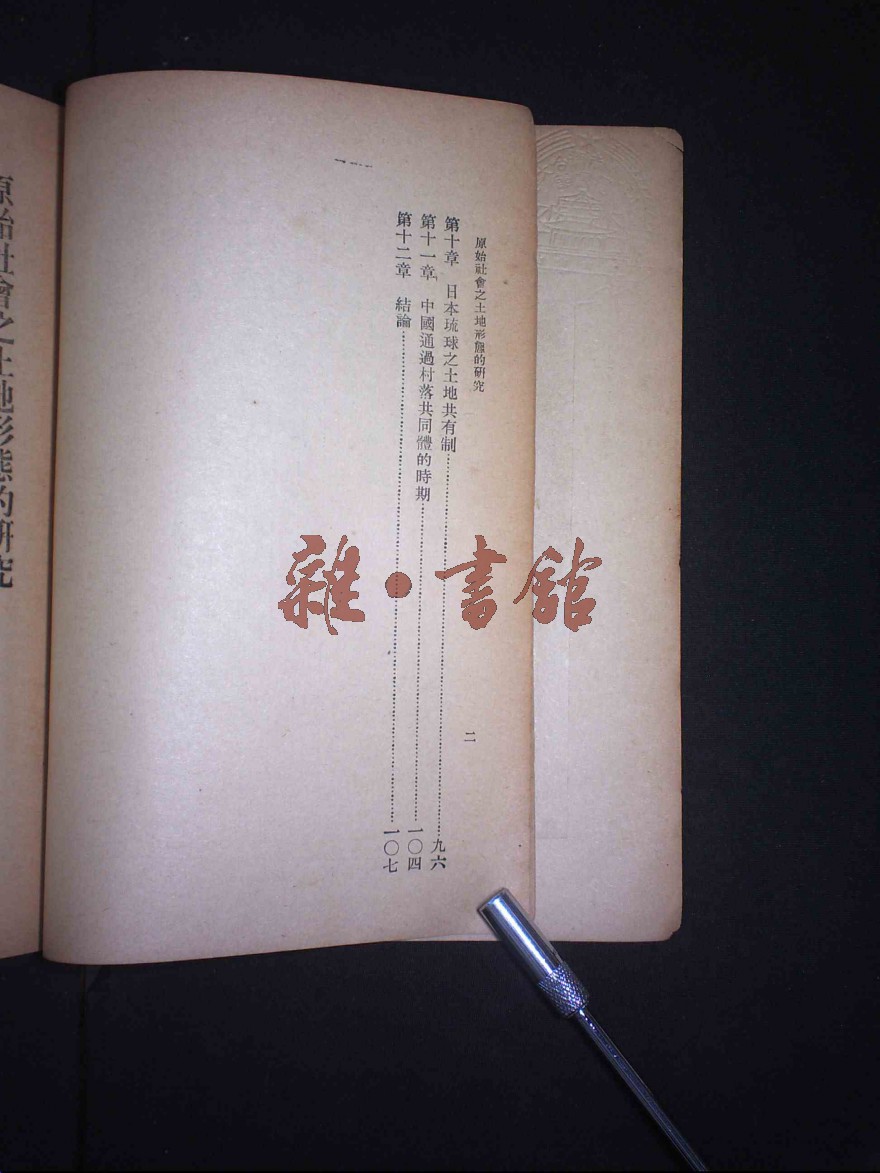 原始社會之土地形態的研究
二
第十章 日本琉球之土地共有制……九六
第十一章 中國通過村落共同體的時期……一〇四
第十二章 結論……一〇七
原始社會之土地形態的研究
雜·書館